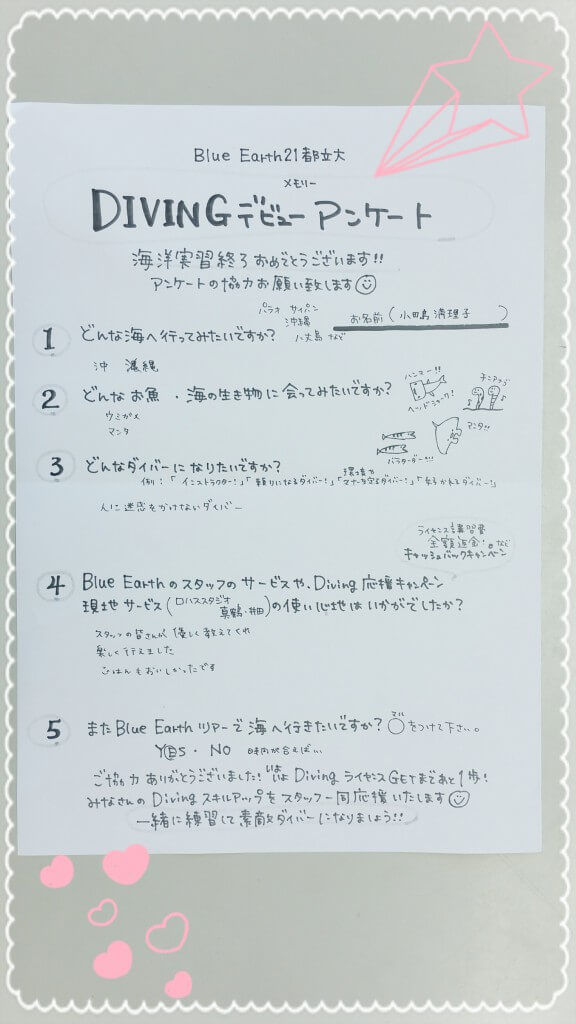 Blue Earth21都立大
メモリー
DIVINGデビューアンケート
海洋実習終了おめでとうございます!!
アンケートの協力お願い致します
お名前(小田島 清理子)
1 どんな海へ行ってみたいですか?
パラオ サイパン
沖縄
八丈島 など
沖縄
2 どんなお魚・海の生き物に会ってみたいですか?
ハンマー!!
ヘッドシャーク!
チンアナゴ
マンタ!!
バラクーダー!!
ウミガメ
マンタ
3 どんなダイバーになりたいですか?
環境や
例:「インストラクター!」「頼りになるダイバー!」「マナーを守るダイバー!」
人に迷惑をかけないダイバー
ライセンス講習費
全額返金!。など
キャッシュバックキャンペーン
4 Blue Earthのスタッフのサービスや、Diving応援キャンペーン
現地サービス(ロハススタジオ
真鶴・井田)の使い心地はいかがでしたか?
スタッフの皆さんが優しく教えてくれ
楽しく行えました
ごはんもおいしかったです
5 またBlue Earthツアーで海へ行きたいですか? マル
○をつけて下さい。
YES・NO 時間が合えばい
ご協力ありがとうございました!いよいよDivingライセンスGETまであと1歩!
みなさんのDivingスキルアップをスタッフ一同応援いたします
一緒に練習して素敵ダイバーになりましょう!!